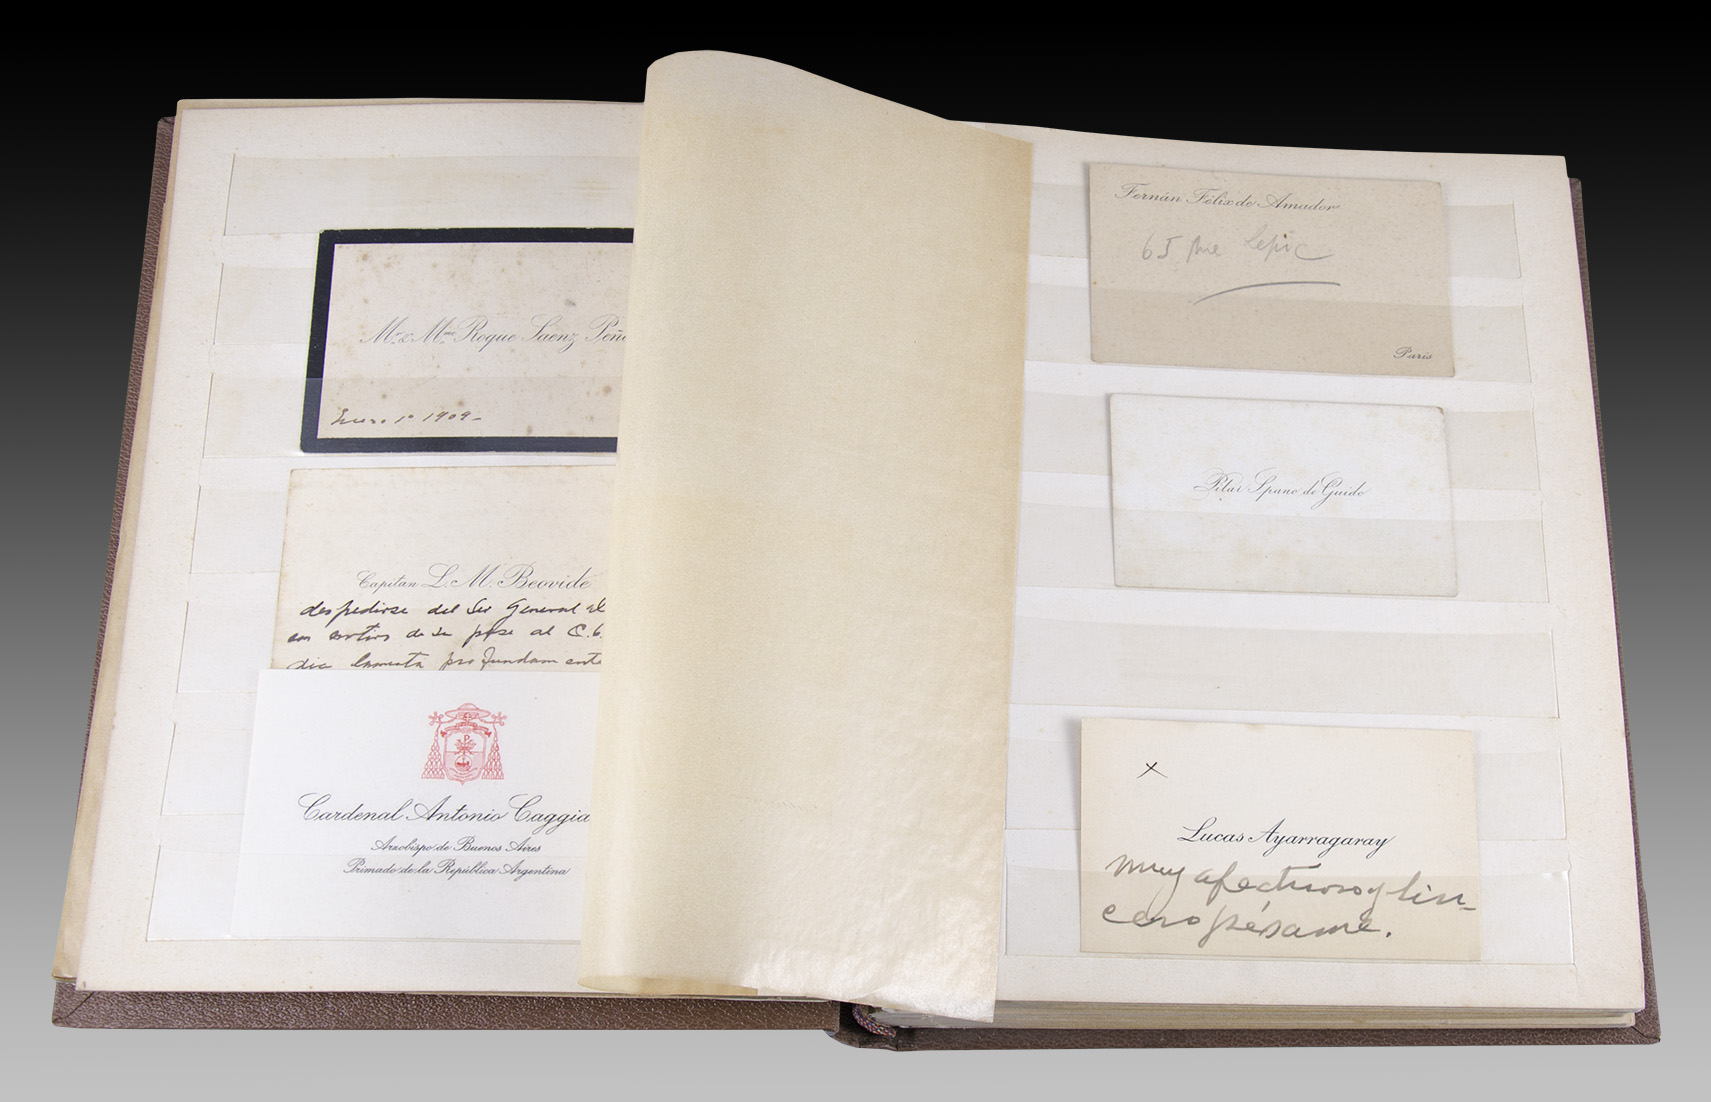 Mr. & Mme. Roque Saenz Peñ
Enero 1º 1909-
Capitan L. M. Beovide
despedirse del Sr General
de su pase al C. 6.
lamenta profundamente
Cardenal Antonio Caggia
Arzobispo de Buenos Aires
Primado de la República Argentina
Fernán Félix de Amador
65 rue Lepic
Paris
Pilar Spano de Guido
x
Lucas Ayarragaray
muy afectuoso y sin-
cero pésame.